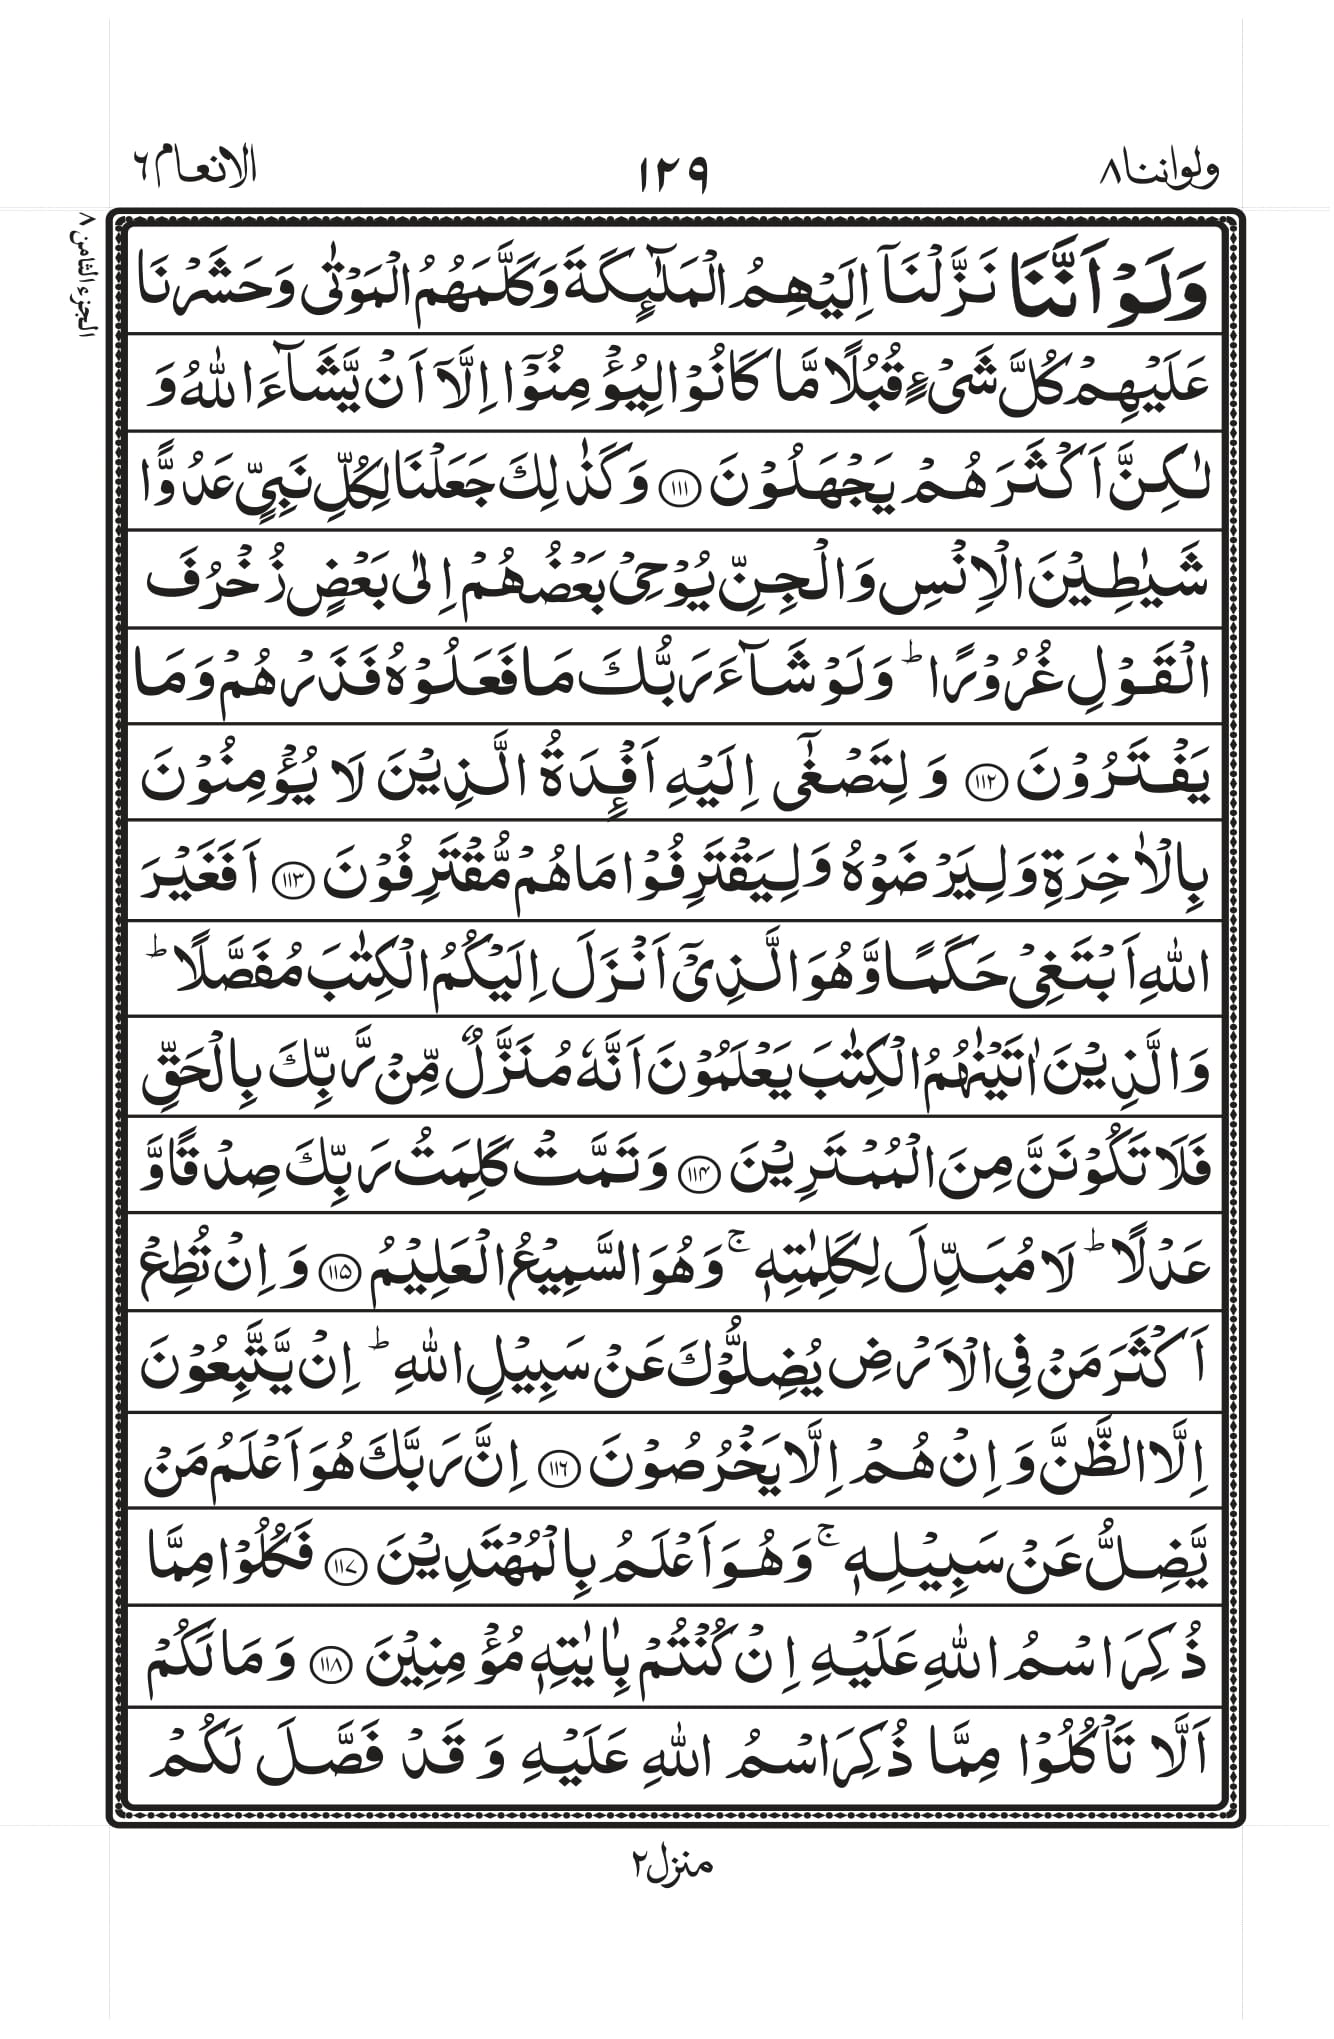 ولواننا ٨
١٢٩
الانعام ٦
الجزء الثامن ٨
وَلَوۡ اَنَّنَا نَزَّلۡنَاۤ اِلَيۡهِمُ الۡمَلٰٓٮِٕكَةَ وَكَلَّمَهُمُ الۡمَوۡتٰى وَحَشَرۡنَا
عَلَيۡهِمۡ كُلَّ شَىۡءٍ قُبُلًا مَّا كَانُوۡا لِيُؤۡمِنُوۡۤا اِلَّاۤ اَنۡ يَّشَآءَ اللّٰهُ وَ
لٰـكِنَّ اَكۡثَرَهُمۡ يَجۡهَلُوۡنَ ﴿۱۱۱﴾ وَكَذٰلِكَ جَعَلۡنَا لِكُلِّ نَبِىٍّ عَدُوًّا
شَيٰطِيۡنَ الۡاِنۡسِ وَالۡجِنِّ يُوۡحِىۡ بَعۡضُهُمۡ اِلٰى بَعۡضٍ زُخۡرُفَ
الۡقَوۡلِ غُرُوۡرًا ؕ وَلَوۡ شَآءَ رَبُّكَ مَا فَعَلُوۡهُ فَذَرۡهُمۡ وَمَا
يَفۡتَرُوۡنَ ﴿۱۱۲﴾ وَلِتَصۡغٰٓى اِلَيۡهِ اَفۡـِٕدَةُ الَّذِيۡنَ لَا يُؤۡمِنُوۡنَ
بِالۡاٰخِرَةِ وَلِيَرۡضَوۡهُ وَلِيَقۡتَرِفُوۡا مَا هُمۡ مُّقۡتَرِفُوۡنَ ﴿۱۱۳﴾ اَفَغَيۡرَ
اللّٰهِ اَبۡتَغِىۡ حَكَمًا وَّهُوَ الَّذِىۡۤ اَنۡزَلَ اِلَيۡكُمُ الۡكِتٰبَ مُفَصَّلًا ؕ
وَالَّذِيۡنَ اٰتَيۡنٰهُمُ الۡكِتٰبَ يَعۡلَمُوۡنَ اَنَّهٗ مُنَزَّلٌ مِّنۡ رَّبِّكَ بِالۡحَقِّ
فَلَا تَكُوۡنَنَّ مِنَ الۡمُمۡتَرِيۡنَ ﴿۱۱۴﴾ وَتَمَّتۡ كَلِمَتُ رَبِّكَ صِدۡقًا وَّ
عَدۡلًا ؕ لَا مُبَدِّلَ لِكَلِمٰتِهٖ ۚ وَهُوَ السَّمِيۡعُ الۡعَلِيۡمُ ﴿۱۱۵﴾ وَاِنۡ تُطِعۡ
اَكۡثَرَ مَنۡ فِى الۡاَرۡضِ يُضِلُّوۡكَ عَنۡ سَبِيۡلِ اللّٰهِ ؕ اِنۡ يَّتَّبِعُوۡنَ
اِلَّا الظَّنَّ وَاِنۡ هُمۡ اِلَّا يَخۡرُصُوۡنَ ﴿۱۱۶﴾ اِنَّ رَبَّكَ هُوَ اَعۡلَمُ مَنۡ
يَّضِلُّ عَنۡ سَبِيۡلِهٖ ۚ وَهُوَ اَعۡلَمُ بِالۡمُهۡتَدِيۡنَ ﴿۱۱۷﴾ فَكُلُوۡا مِمَّا
ذُكِرَ اسۡمُ اللّٰهِ عَلَيۡهِ اِنۡ كُنۡتُمۡ بِاٰيٰتِهٖ مُؤۡمِنِيۡنَ ﴿۱۱۸﴾ وَمَا لَكُمۡ
اَلَّا تَاۡكُلُوۡا مِمَّا ذُكِرَ اسۡمُ اللّٰهِ عَلَيۡهِ وَقَدۡ فَصَّلَ لَكُمۡ
منزل ٢